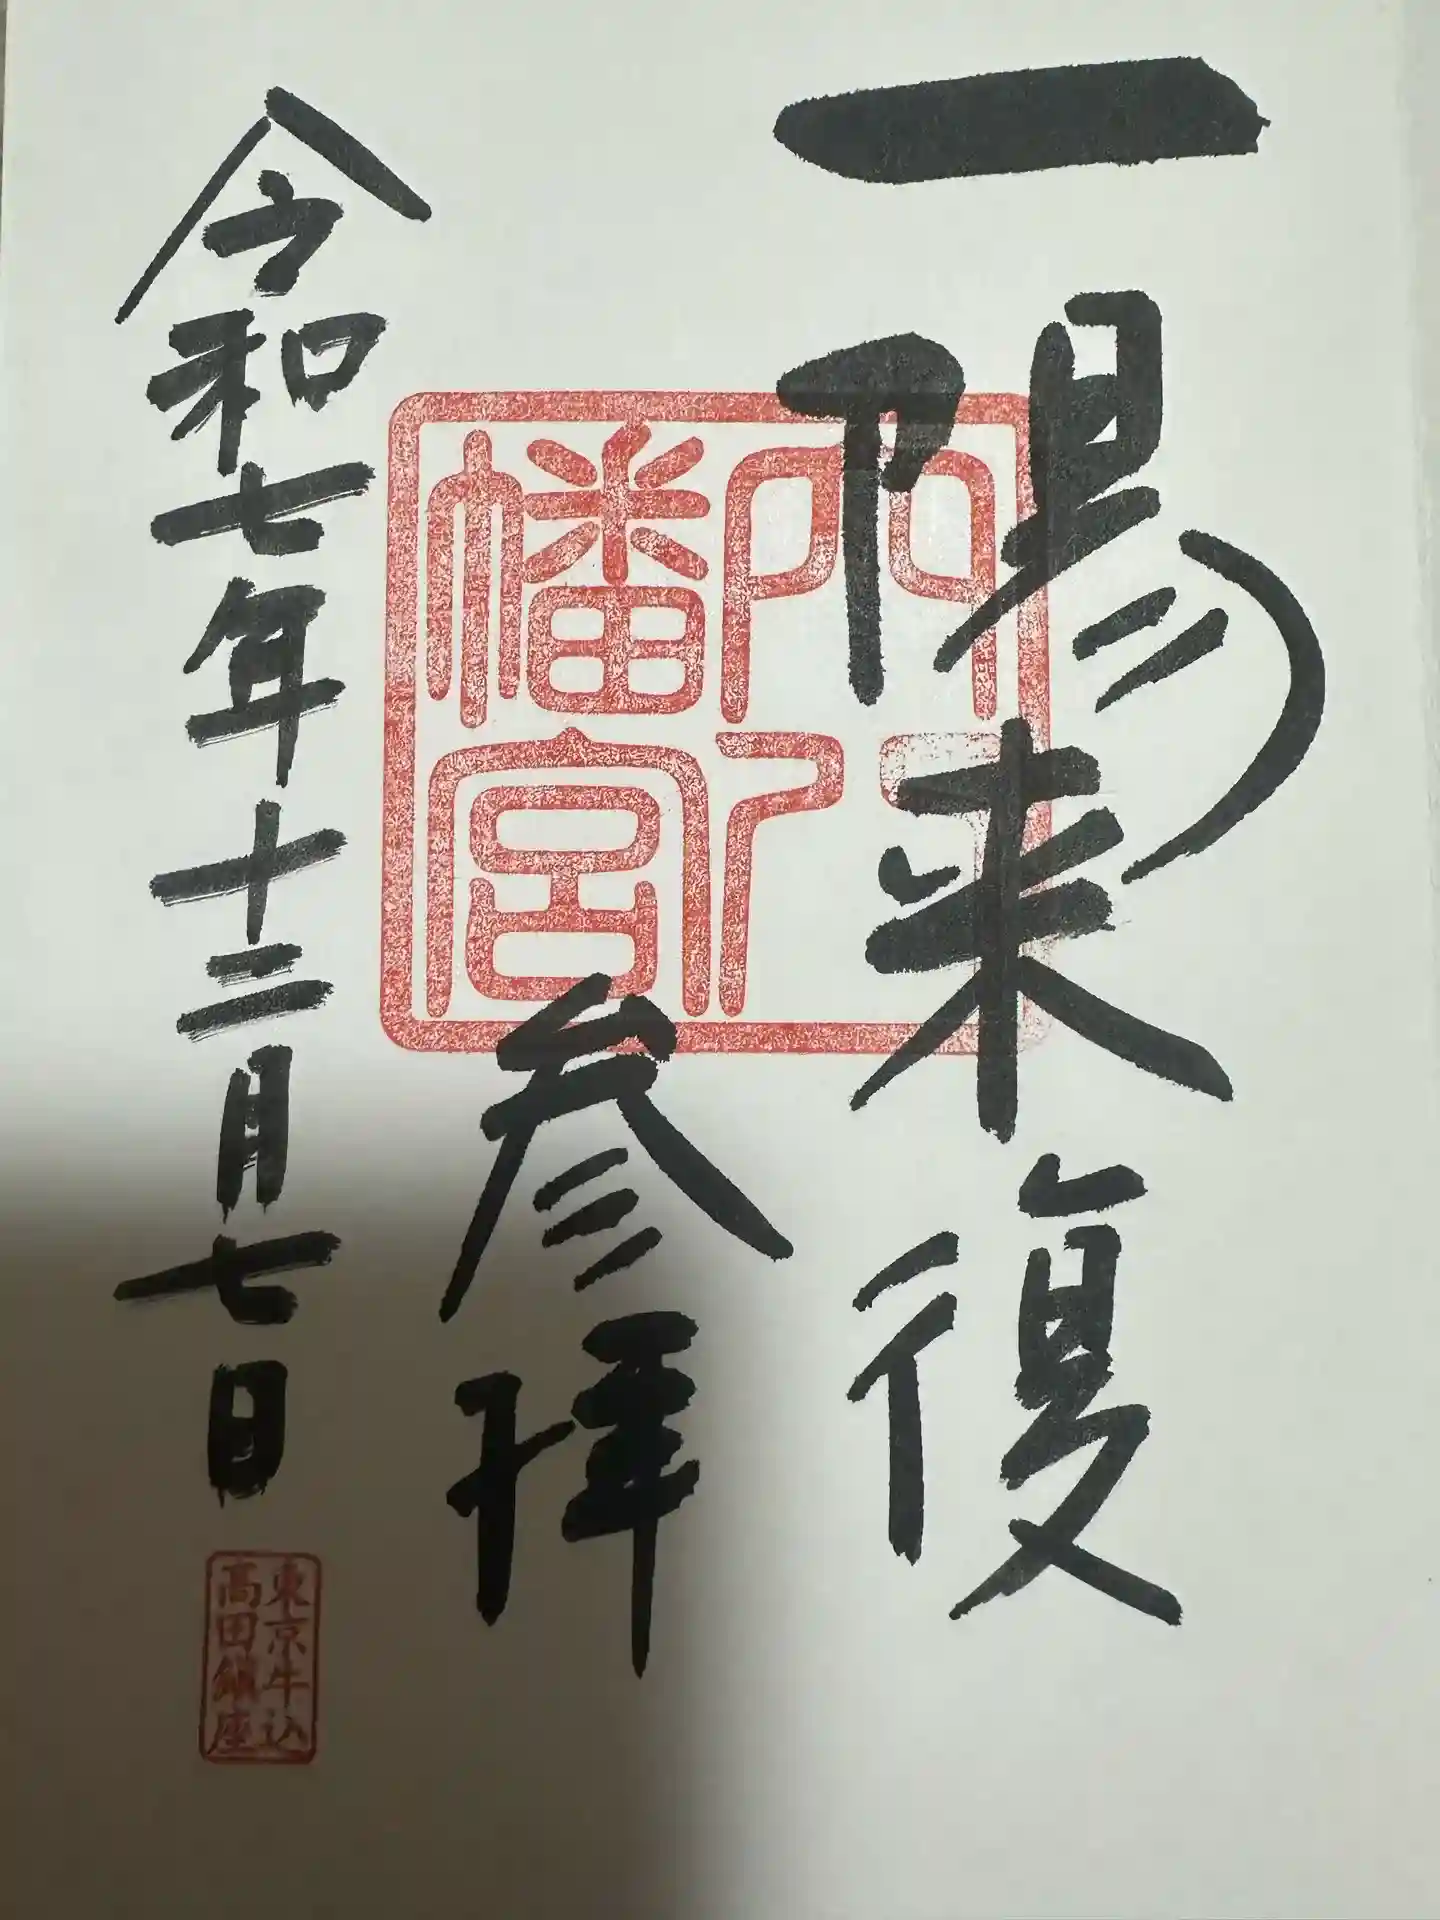 一陽来復
穴八
幡宮
参拝
令和七年十二月七日
東京牛込
高田鎮座